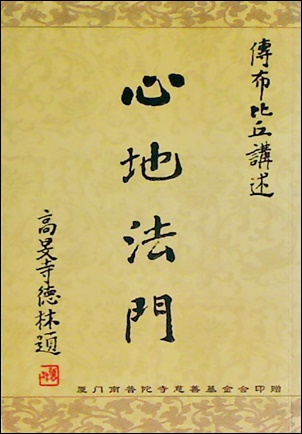 傳布比丘講述
心地法門
高旻寺德林題
厦门南普陀寺慈善基金会印赠